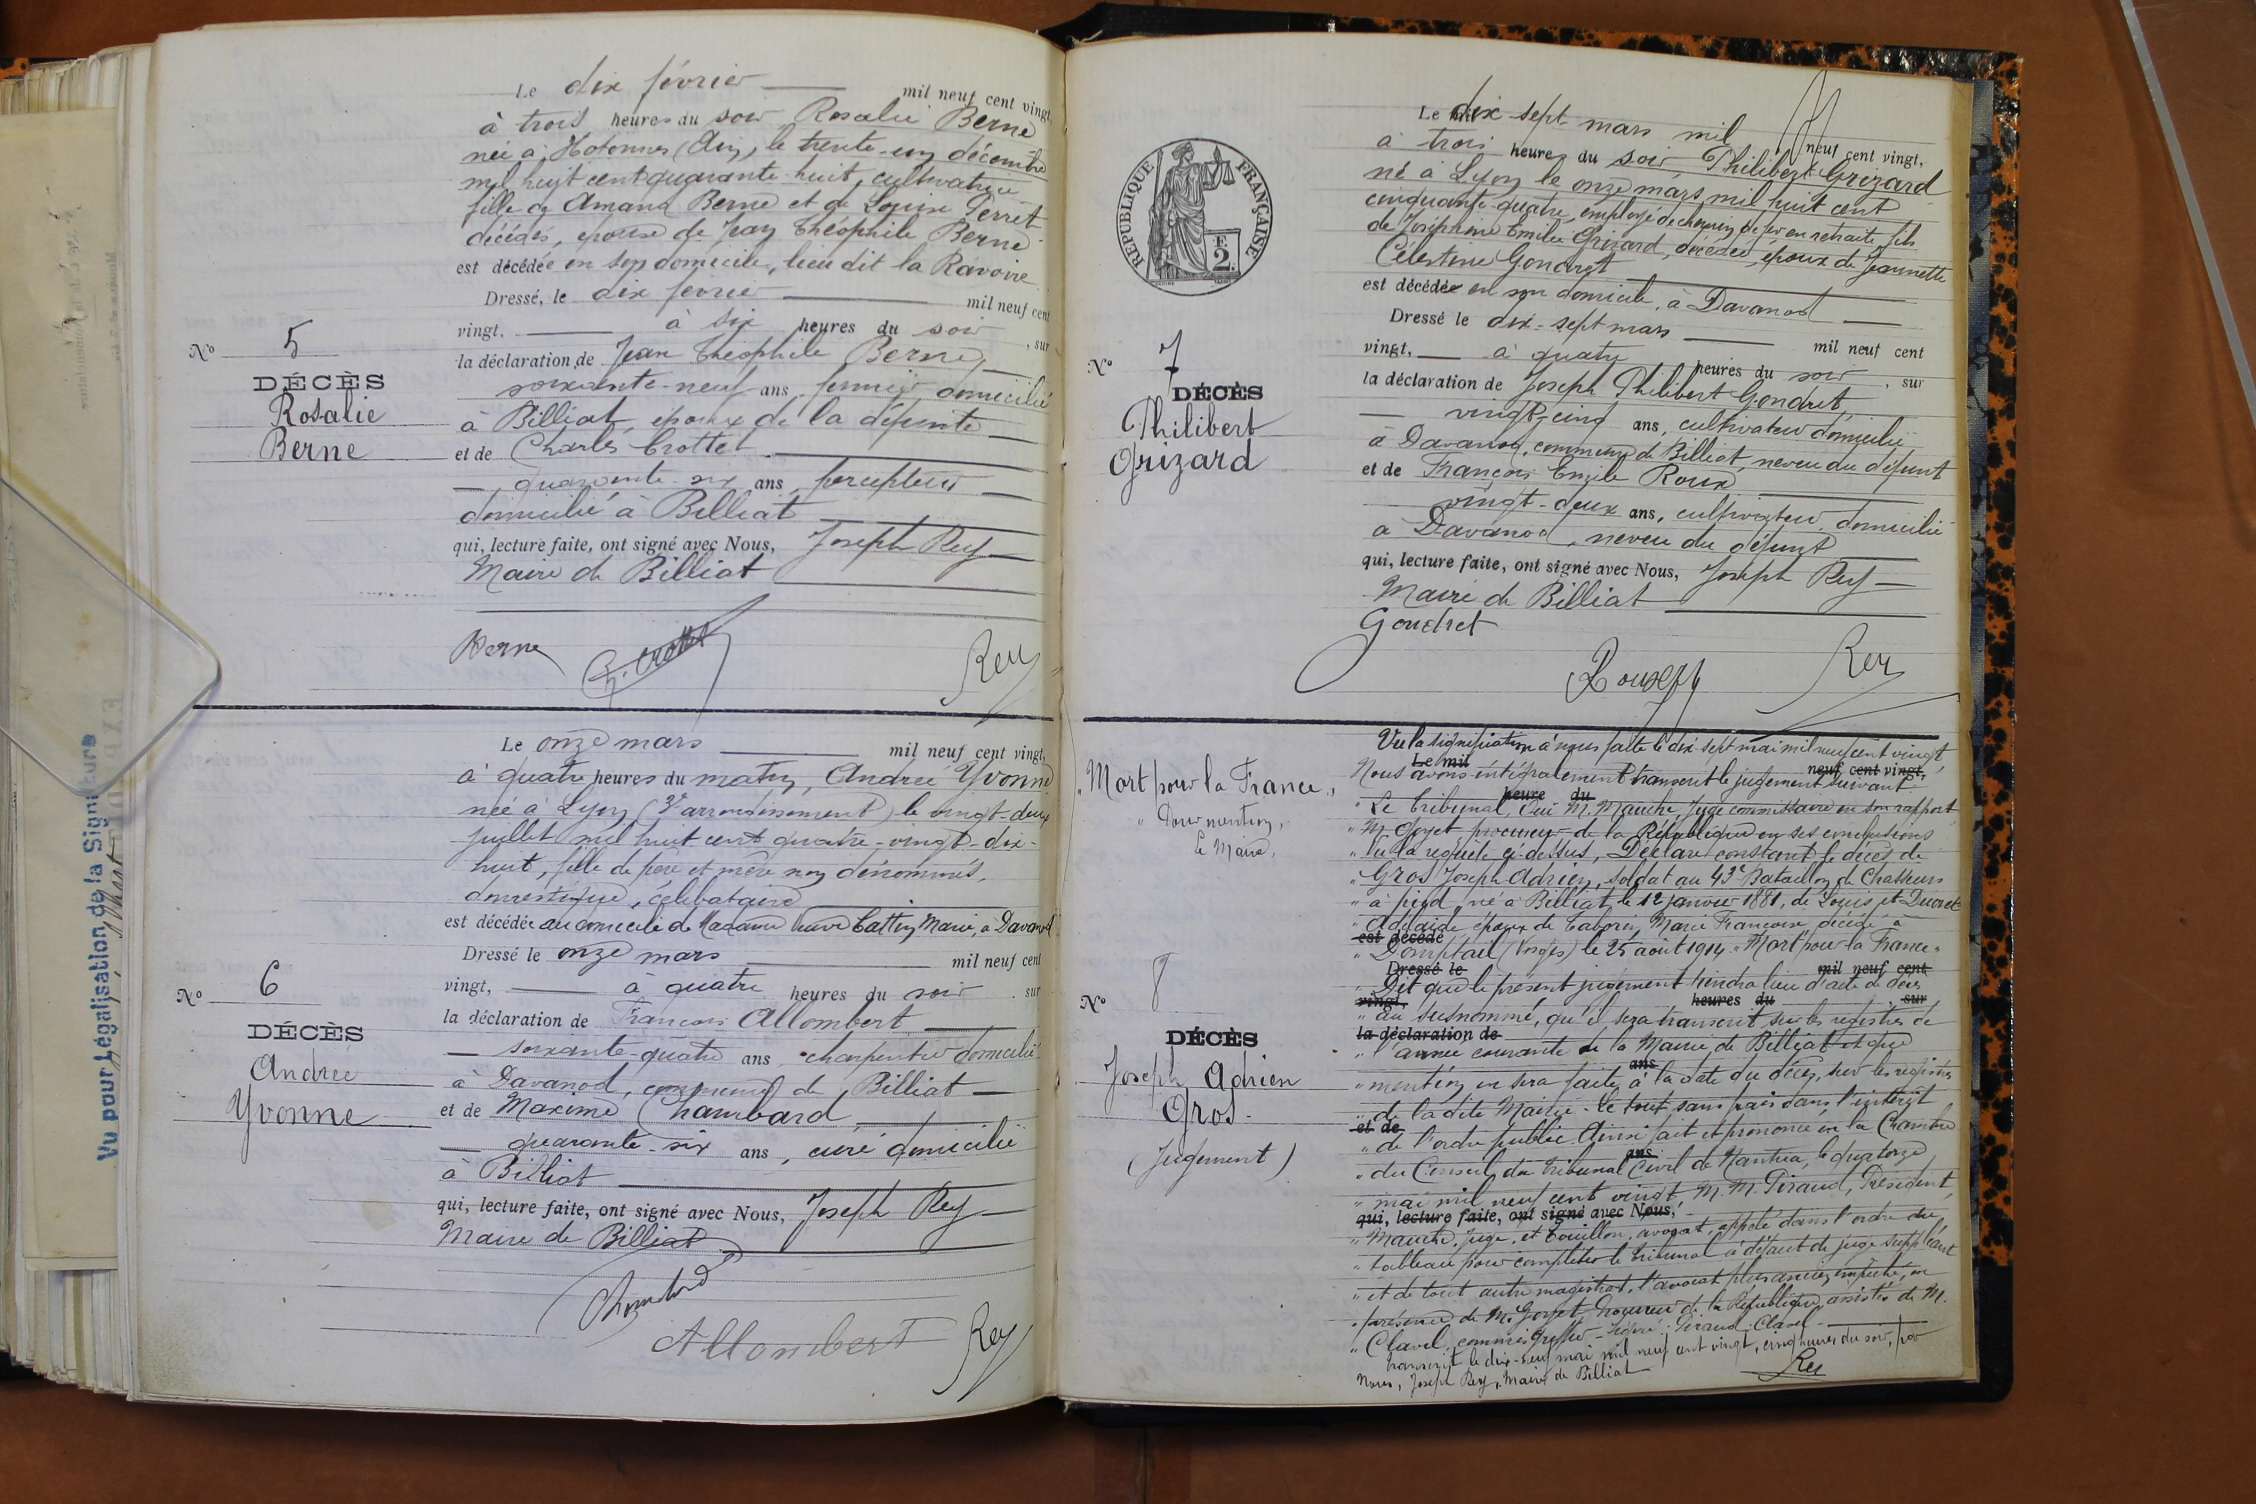 Le dix février mil neuf cent vingt,
à trois heures du soir Rosalie Berne
née à Hotonnes (Ain), le trente-un décembre
mil huit cent quarante-huit, cultivatrice
fille de Amand Berne et de Louise Perret
décédés, épouse de Jean Théophile Berne
est décédée en son domicile, lieu dit la Ravoire
Dressé, le dix février mil neuf cent
vingt, à six heures du soir, sur
la déclaration de Jean Théophile Berne,
soixante-neuf ans, fermier domicilié
à Billiat, époux de la défunte
et de Charles Crottet
quarante-six ans, percepteur
domicilié à Billiat
qui, lecture faite, ont signé avec Nous, Joseph Rey
Maire de Billiat
Berne Ch. Crottet Rey
No 5
DÉCÈS
Rosalie
Berne
Le onze mars mil neuf cent vingt,
à quatre heures du matin, Andrée Yvonne
née à Lyon (3e arrondissement) le vingt-deux
juillet mil huit cent quatre-vingt-dix-
huit, fille de père et mère non dénommés,
domestique, célibataire
est décédée au domicile de Madame veuve Cattin Marie, à Davanod
Dressé le onze mars mil neuf cent
vingt, à quatre heures du soir sur
la déclaration de François Allombert
soixante-quatre ans, charpentier domicilié
à Davanod, commune de Billiat
et de Maxime Chambard
quarante-six ans, curé domicilié
à Billiat
qui, lecture faite, ont signé avec Nous, Joseph Rey
Maire de Billiat
Chambard
Allombert Rey
No 6
DÉCÈS
Andrée
Yvonne
Vu pour Légalisation de la Signature
RÉPUBLIQUE FRANÇAISE
2
Le dix-sept mars mil neuf cent vingt,
à trois heures du soir Philibert Grizard
né à Lyon le onze mars mil huit cent
cinquante-quatre, employé de chemin de fer en retraite, fils
de Joséphine Emilie Grizard, décédée, époux de Jeannette
Célestine Gondret
est décédé en son domicile, à Davanod
Dressé le dix-sept mars mil neuf cent
vingt, à quatre heures du soir, sur
la déclaration de Joseph Philibert Gondret,
vingt-cinq ans, cultivateur domicilié
à Davanod, commune de Billiat, neveu du défunt
et de François Emile Roux
vingt-deux ans, cultivateur domicilié
à Davanod, neveu du défunt
qui, lecture faite, ont signé avec Nous, Joseph Rey
Maire de Billiat
Gondret
Rey
No 7
DÉCÈS
Philibert
Grizard
"Mort pour la France"
Le Maire,
No 8
DÉCÈS
Joseph Adrien
Gros
(Jugement)
Vu la signification à nous faite le dix-sept mai mil neuf cent vingt,
Le mil neuf cent vingt,
Nous avons intégralement transcrit le jugement suivant
heure du
"Le Tribunal, Ouï M. Mauche, Juge commissaire en son rapport
"M. Goyet procureur de la République en ses conclusions
"Vu la requête ci-dessus, Déclare constant le décès de
"Gros Joseph Adrien, soldat au 43e Bataillon de Chasseurs
"à pied, né à Billiat le 12 janvier 1881, de Louis et Ducret
"Adélaïde époux de Taborin Marie Françoise décédé à
est décédé
"Domptail (Vosges) le 25 août 1914 "Mort pour la France"
Dressé le mil neuf cent
"Dit que le présent jugement tiendra lieu d'acte de décès
vingt, heures du sur
"au susnommé, qu'il sera transcrit sur les registres de
la déclaration de
"l'année courante de la Mairie de Billiat et que
ans
"mention en sera faite, à la date du décès, sur les registres
"de la dite Mairie. Le tout sans frais dans l'intérêt
et de
"de l'ordre public. Ainsi fait et prononcé en la Chambre
ans
"du Conseil du tribunal Civil de Nantua, le quatorze
"mai mil neuf cent vingt, M.M. Piraud, Président,
qui, lecture faite, ont signé avec Nous,
"Mauche, juge, et Touillon, avocat, appelé dans l'ordre du
"tableau pour compléter le tribunal à défaut de juge suppléant
"et de tout autre magistrat, l'avocat plus ancien empêché, en
"présence de M. Goyet, Procureur de la République, assistés de M.
"Clavel, commis greffier - signé: Piraud, Clavel.
Transcrit le dix-neuf mai mil neuf cent vingt, cinq heures du soir, par
Nous, Joseph Rey, Maire de Billiat
Rey